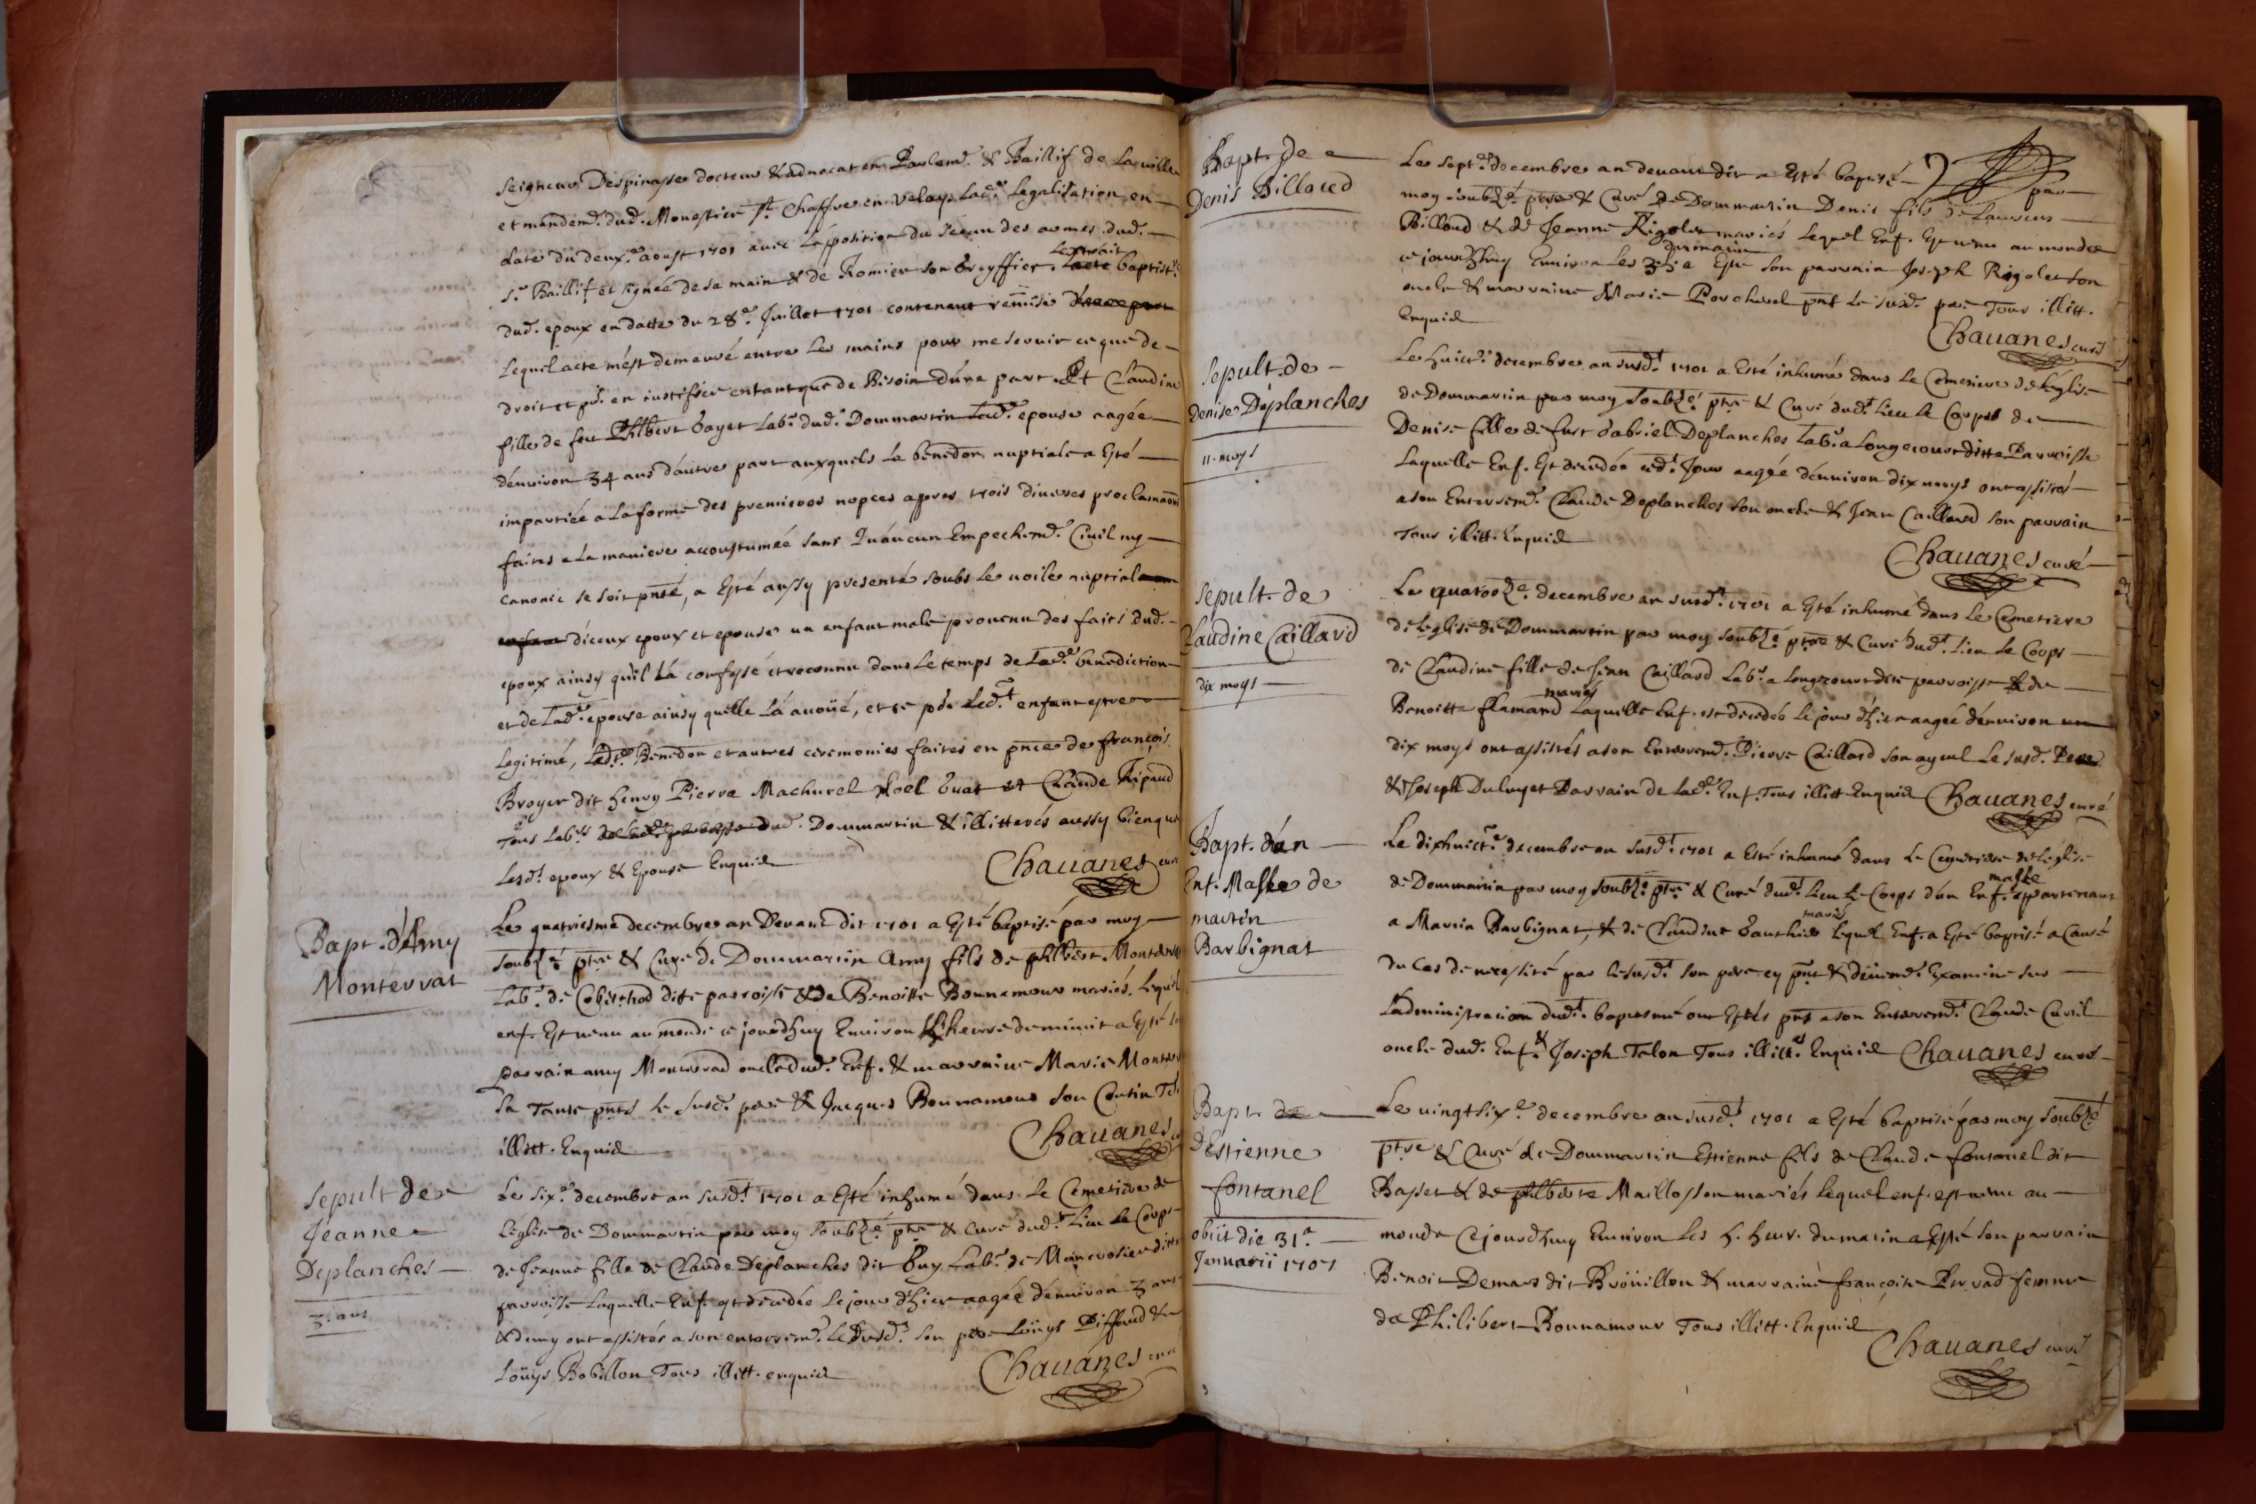 seigneur Despinasse docteur & advocat en Parlemt. & Baillif de la ville
et mandemt. dud. Monestier St. Chaffre en velay Lade. Legalisation en
date du deuxe. aoust 1701 avec L'aposition du sceau des armes dud.
Sr. Baillif et signée de sa main & de Romieu son Greyffier,
dud. epoux en datte du 28e. Juillet 1701 contenant
Lequel acte m'est demeuré entre les mains pour me servir ce que de
droit et pr. en justifier entant que de Besoin d'une part. Et Claudine
fille de feu Philbert Gayet Labr. dud. Dommartin Lade. epouse aagée
d'environ 34 ans d'autre part auxquels la benedon nuptiale a Esté
impartiée a La forme des premieres nopces apres trois diverses proclamaons
faites a La maniere accoustumée sans Qu'aucun Empechemt. Civil ny
canonic se soit pnté, a Esté aussy presenté soubs le voile nuptial
d'iceux epoux et epouse un enfant male provenu des faits dud.
epoux ainsy qu'il L'a confessé et reconnu dans Le temps de Lade. benediction
et de Lade. epouse ainsy quelle L'a avoüé, et ledt. enfant estre
legitimé, Lade. Benedon et autres ceremonies faites en pnce de françois
Broyer dit henry Pierre Machurel Noel Guat et Claude Ripaud
Tous Labrs dud. Dommartin & illitterés aussy bien que
Lesdt. epoux & Epouse Enquis
Chauanes curé
Bapt. d'Amy
Monterrat
Le quatriesme decembre an Devant dit 1701 a Esté baptisé par moy
soubze. ptre & Curé de Dommartin Amy fils de philbert
Labr. de dite parroisse & de Benoitte Bonnamour mariés. Lequel
enf. Est venu au monde ce jourdhuy Environ heure de minuit a Esté
parrain amy Monterrad oncle dud. Enf. & marraine Marie
sa Tante pnts le susd. pere & Jacques Bonnamour son Cousin
illitt. Enquis
Chauanes
Sepult de
Jeanne
Deplanches
3. ans
Le sixe. decembre an susdt. 1701 a Esté inhumé dans Le Cemetiere de
L'eglise de Dommartin par moy soubzé. ptre & Curé dudt. Lieu Le Corps
de Jeanne fille de Claude Deplanches dit Guy Labr. de ditte
parroisse Laquelle Enf. est decedée Le jour d'hier aagée d'environ 3 ans
& demy ont assistés a son enterremt. Le susdt. son pere Loüys Piffaud &
Loüys Bobillon Tous illitt. enquis
Chauanes curé
Bapt. de
Denis Billoud
Le septe. decembre an devant dit a Esté baptisé
par
moy soubzé. ptre & Curé de Dommartin Denis fils de Laurens
Billoud & de Jeanne Rigolet mariés Lequel Enf. Est venu au monde
du matin
ce jourdhuy Environ les a Esté son parrain Joseph Rigolet son
oncle & marraine Marie Porcherel pnt Le susd. pere Tous illitt.
Enquis
Chauanes curé
Sepult. de
Denise Deplanches
11. moys
Le huicte. decembre an susdt. 1701 a Esté inhumé dans Le Cemetiere de L'eglise
de Dommartin par moy soubzé. ptre & Curé dudt. Lieu Le Corps de
Denise fille de fust Gabriel Deplanches Labr. a Longecourt ditte Parroisse
Laquelle Enf. Est decedée cedt. Jour aagée d'environ dix moys ont assistés
a son Enterremt. Claude Deplanches son oncle & Jean Caillard son parrain
Tous illitt. Enquis
Chauanes curé
Sepult. de
Claudine Caillard
dix moys
Le quatorze. decembre an susdt. 1701 a Esté inhumé dans Le Cemetiere
de L'eglise de Dommartin par moy soubzé. ptre & Curé dudt. Lieu Le Corps
de Claudine fille de Jean Caillard Labr. a Longecourt dite parroisse & de
mariés
Benoitte flamand Laquelle Enf. est decedée Le jour d'hier aagée d'environ
dix moys ont assistés a son Enterremt. Pierre Caillard son ayeul Le susd. Pere
& Joseph Duluyet Parrain de Lade. Enf. Tous illitt Enquis Chauanes curé
Bapt. d'un
Enf. Masle de
martin
Barbignat
Le dixhuicte. decembre an susdt. 1701 a Esté inhumé dans Le Cemetiere de L'eglise
masle
de Dommartin par moy soubzé. ptre & Curé dudt. Lieu Le Corps d'un Enf. appartenant
mariés
a Martin Barbignat, & de Claudine Gauthier Lequel Enf. a Esté baptisé a Cause
du Cas de necessité par Le susdt. son pere cy pnt & düemt. Examiné sur
L'administration dudt. baptesme ont Estés pnts a son Enterremt. Claude Cavil
oncle dud. Enf. & Joseph Talon Tous illitt. Enquis Chauanes curé
Bapt. de
d'Estienne
fontanel
obiit die 31a
Januarii 1701
Le vingt sixe. decembre an susdt. 1701 a Esté baptisé par moy soubzé
ptre & Curé de Dommartin Estienne fils de Claude fontanel dit
Basset & de philberte Maillosson mariés Lequel enf. est venu au
monde Cejourdhuy Environ Les 4. heure du matin a Esté son parrain
Benoit Demars dit Broüillon & marraine françoise Perrad femme
de Philibert Bonnamour Tous illitt. Enquis
Chauanes curé